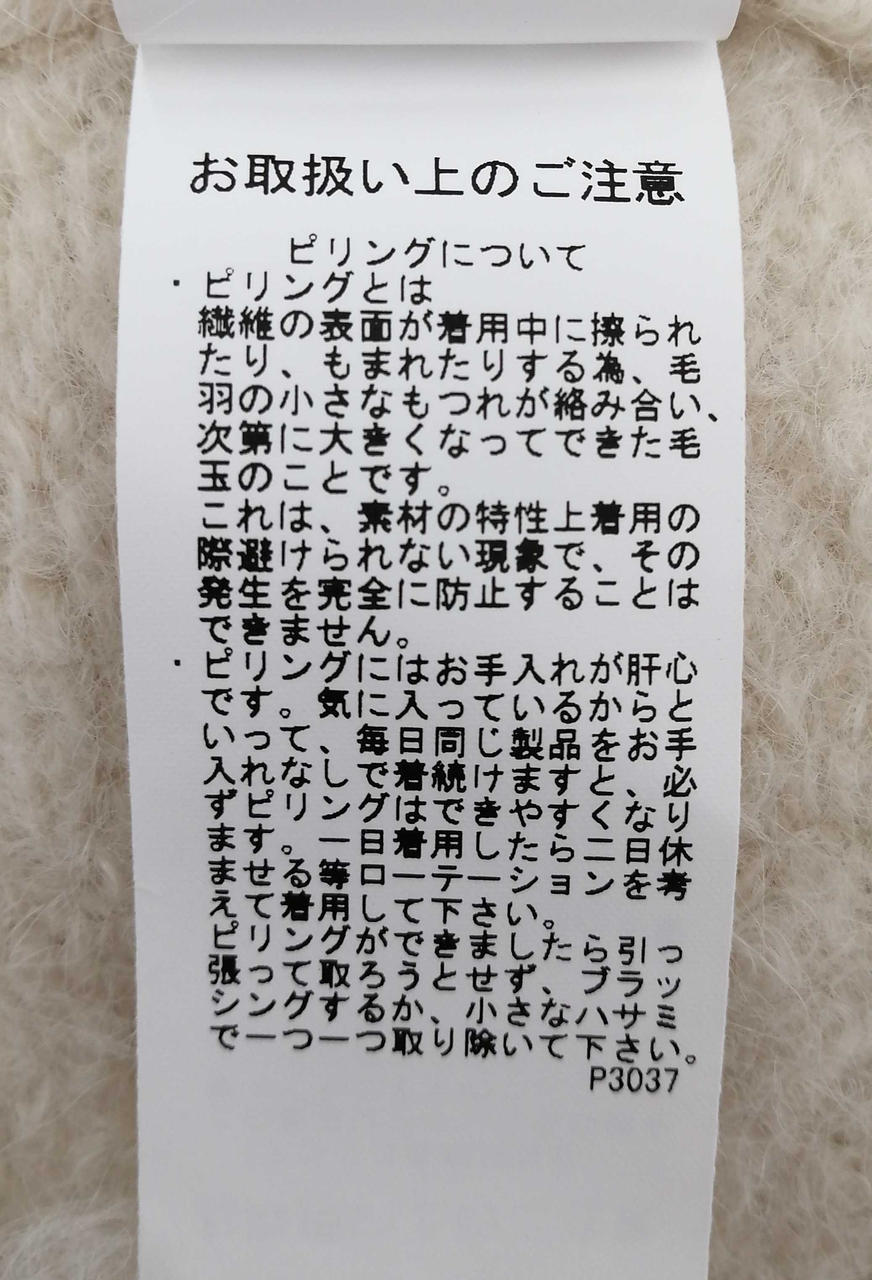 お取扱い上のご注意
ピリングについて
・ピリングとは
繊維の表面が着用中に擦られ
たり、もまれたりする為、毛
羽の小さなもつれが絡み合い、
次第に大きくなってできた毛
玉のことです。
これは、素材の特性上着用の
際避けられない現象で、その
発生を完全に防止することは
できません。
・ピリングにはお手入れが肝心
です。気に入っているからと
いって、毎日同じ製品をお手
入れなしで着続けますと、必
ずピリングはできやすくなり
ます。一日着用したら二日休
ませる等ローテーションを考
えて着用して下さい。
ピリングができましたら引っ
張って取ろうとせず、ブラッ
シングするか、小さなハサミ
で一つ一つ取り除いて下さい。
P3037